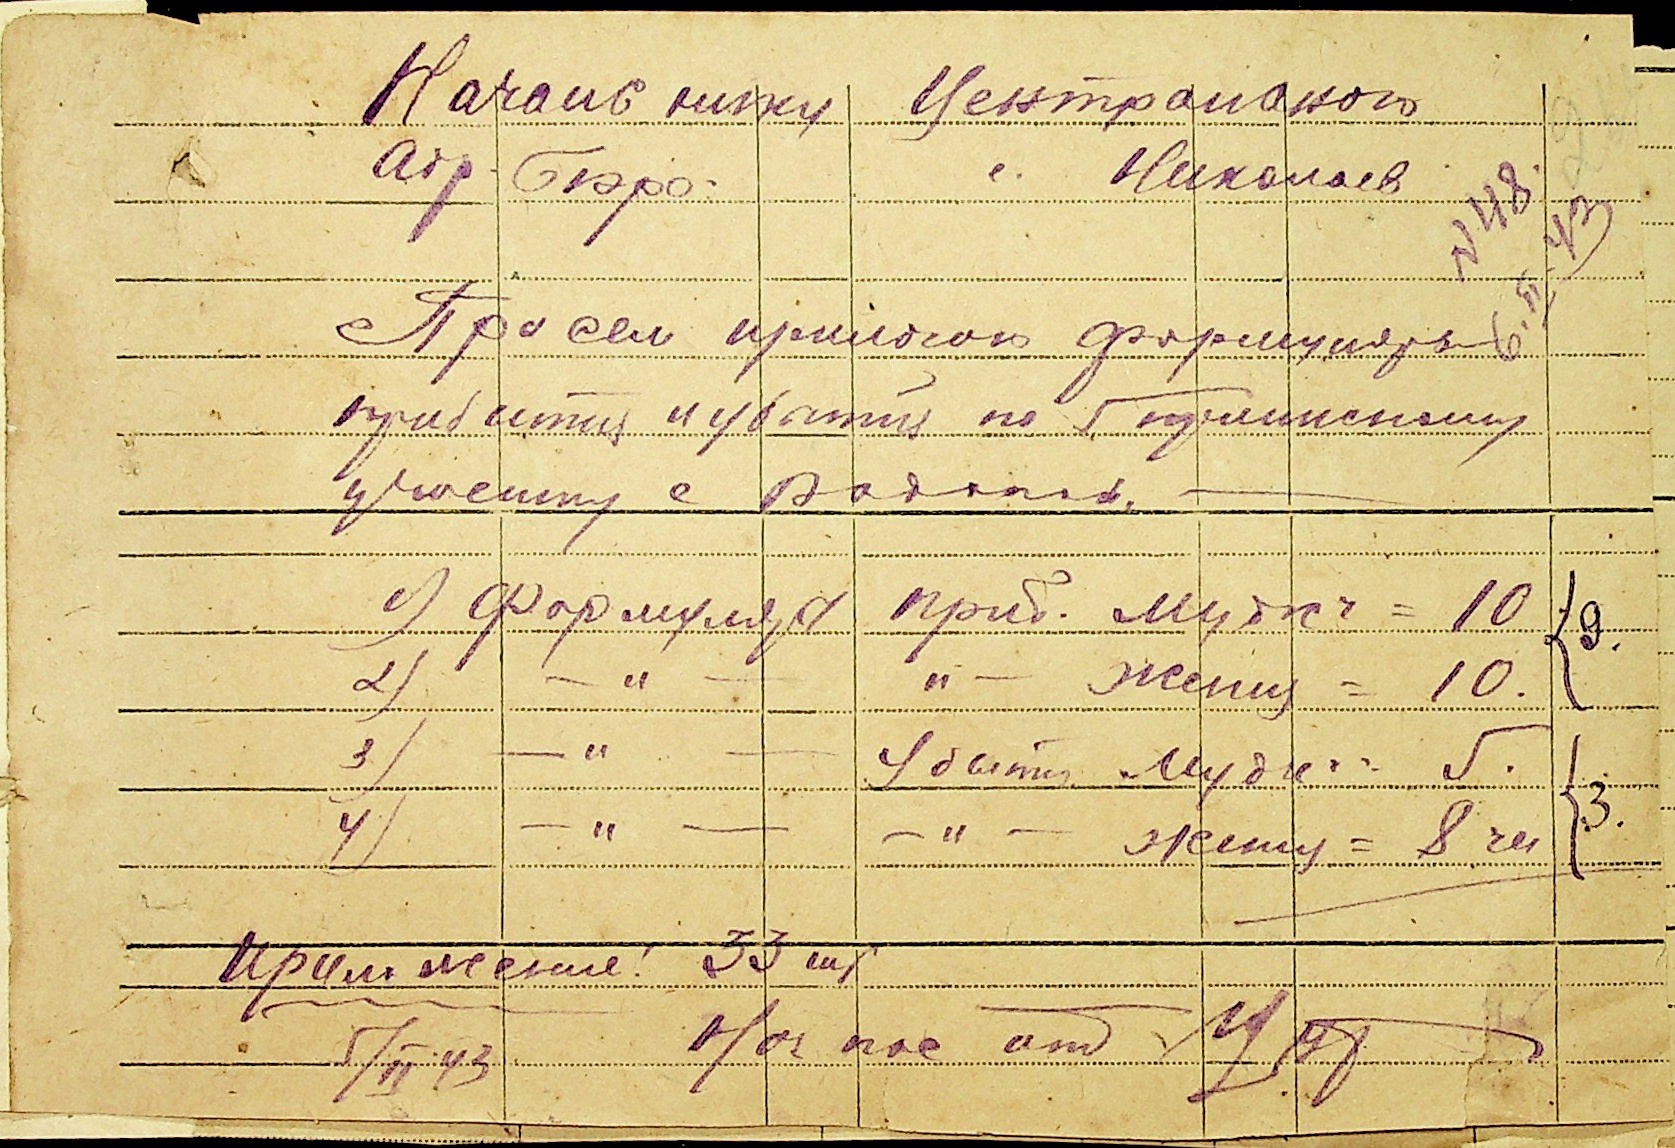 Начальнику Центрального
Адр. Бюро. г. Николаев
№ 48.
6.II.43
При сем прилогаю формуляры
прибытия и убытия по
участку с
1) Формуляр приб. Мужч = 10 } 9.
2) — " — " — женщ = 10.
3) — " — Убыти Мужч = 5. } 3.
4) — " — — " — женщ = 8 чел
Приложение: 33 шт
5/II 43 Нач пас отд